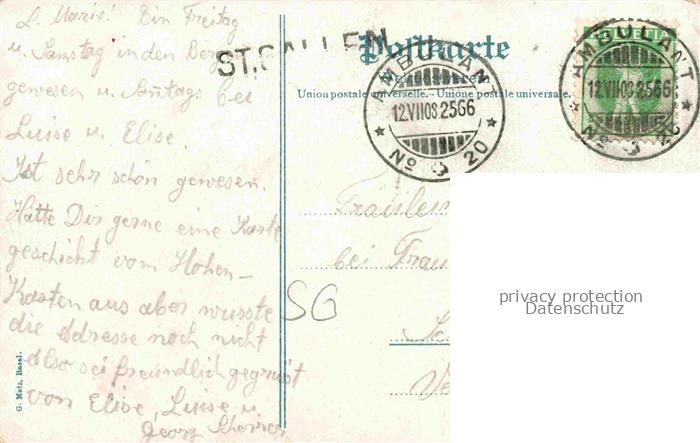 L. Marie! Bin Freitag
u. Samstag in den Bergen
gewesen u. Sontags bei
Luise u. Elise.
Ist sehr schön gewesen.
Hätte Dir gerne eine Karte
geschickt vom Hohen-
Kasten aus aber wusste
die Adresse noch nicht
Also sei freundlich gegrüst
von Elise, Luise u.
Georg Scherrer
G. Metz, Basel.
ST. GALLEN
Postkarte
Union postale universelle. - Unione postale universale.
AMBULANT
12.VII08.2566
No 20
HELVETIA
AMBULANT
12.VII08.2566
No 20
Fräulein
bei Frau
SG
privacy protection
Datenschutz